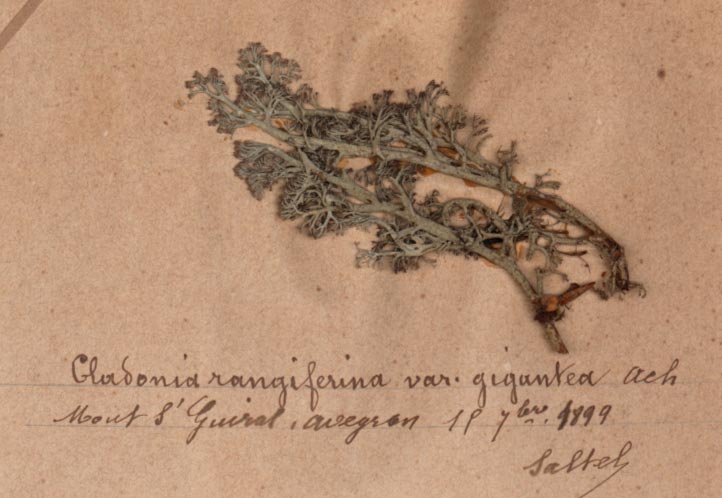 Cladonia rangiferina var. gigantea Ach
Mont St Guiral, aveyron 15 7bre. 1899
Saltel